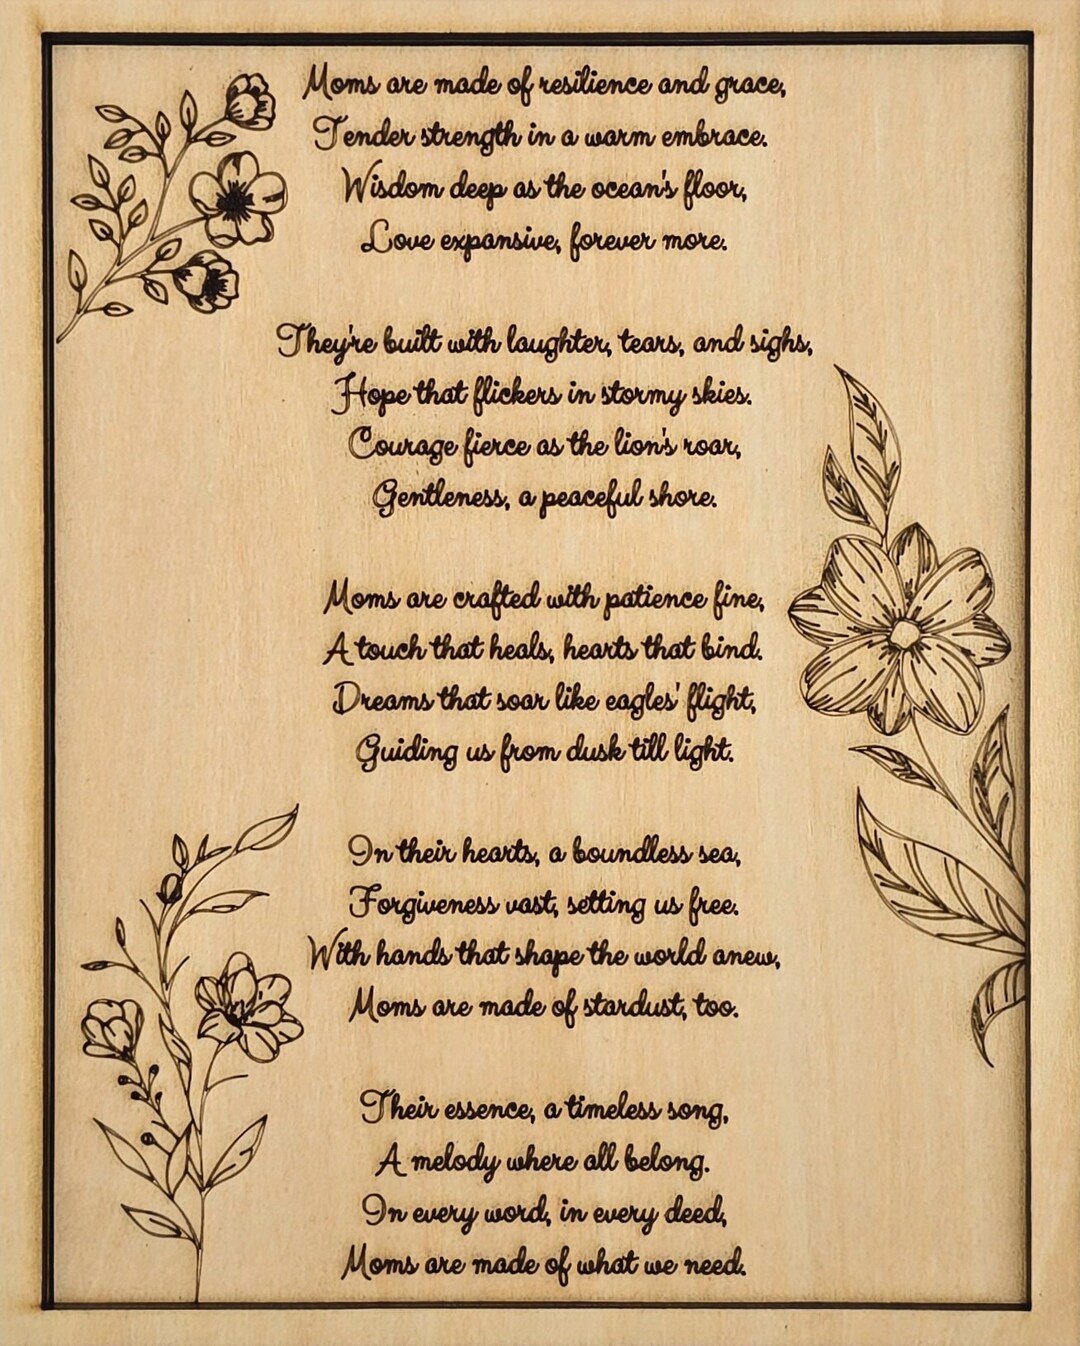 Moms are made of resilience and grace,
Tender strength in a warm embrace.
Wisdom deep as the ocean's floor,
Love expansive, forever more.
They're built with laughter, tears, and sighs,
Hope that flickers in stormy skies.
Courage fierce as the lion's roar,
Gentleness, a peaceful shore.
Moms are crafted with patience fine,
A touch that heals, hearts that bind.
Dreams that soar like eagles' flight,
Guiding us from dusk till light.
In their hearts, a boundless sea,
Forgiveness vast, setting us free.
With hands that shape the world anew,
Moms are made of stardust, too.
Their essence, a timeless song,
A melody where all belong.
In every word, in every deed,
Moms are made of what we need.